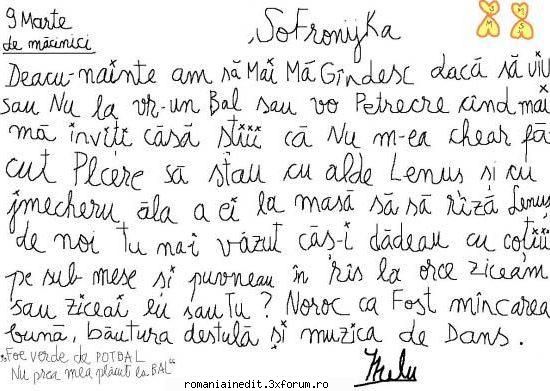 9 Marte
de măcinici
SoFronijKa
Deacu-nainte am să Mai Mă Gîndesc dacă să viu
sau Nu la vr-un Bal sau vo Petrecre cînd mai
mă inviți căsă știii că Nu m-ea chear fă
cut Plcere să stau cu alde Lenuș și cu
jmecheru ăla a ei la masă să să rîză Lenuș
de noi tu nai văzut căs-i dădeau cu coțiii
pe sub mese și puvneau în rîs la orce ziceăm
sau ziceai eu sau tu? Noroc ca Fost mîncarea
bună, băutura destulă și muzica de Dans.
"Foe verde de POTBAL
Nu prea mea plăcut la BAL"
romaniainedit.3xforum.ro